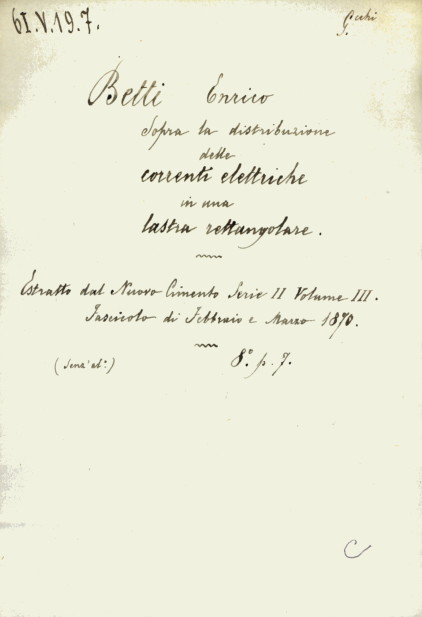 61.V.19.7.
Betti Enrico
Sopra la distribuzione
delle
correnti elettriche
in una
lastra rettangolare.
Estratto dal Nuovo Cimento Serie II Volume III.
Fascicolo di Febbraio e Marzo 1870.
8.° p. 7.
C